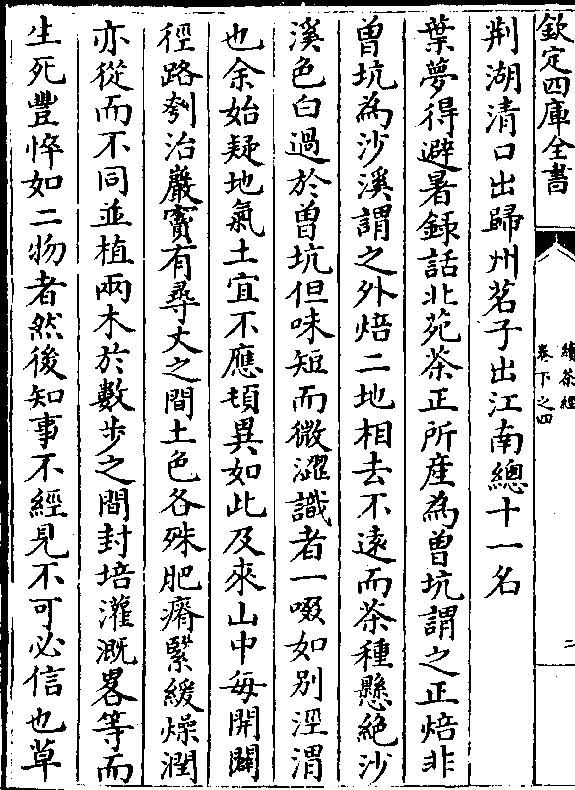 欽定四庫全書
續茶經
卷下之四
二
荆湖清口出歸州茗子出江南總十一名
葉夢得避暑録話北苑茶正所産為曾坑謂之正焙非
曾坑為沙溪謂之外焙二地相去不遠而茶種懸絶沙
溪色白過於曾坑但味短而微澀識者一啜如别涇渭
也余始疑地氣土宜不應頓異如此及來山中每開闢
徑路刳治巖竇有尋丈之間土色各殊肥瘠緊緩燥潤
亦從而不同並植兩木於數步之間封培灌溉畧等而
生死豐悴如二物者然後知事不經見不可必信也草